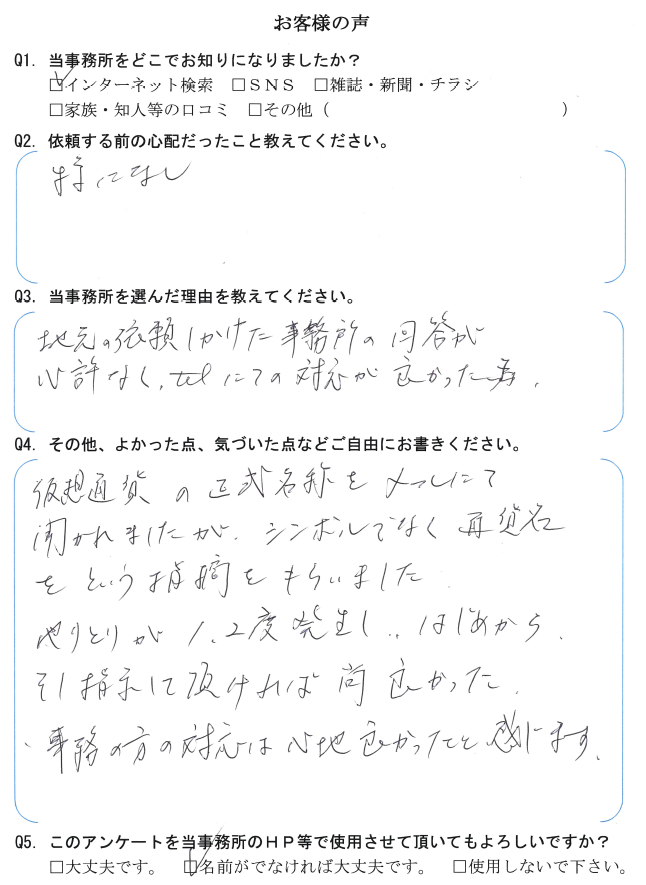 お客様の声
Q1. 当事務所をどこでお知りになりましたか？
☑インターネット検索 □ＳＮＳ □雑誌・新聞・チラシ
□家族・知人等の口コミ □その他（ ）
Q2. 依頼する前の心配だったこと教えてください。
特になし
Q3. 当事務所を選んだ理由を教えてください。
地元の依頼しかけた事務所の回答が
心許なく、telにての対応が良かった為。
Q4. その他、よかった点、気づいた点などご自由にお書きください。
仮想通貨の正式名称をメールにて
聞かれましたが、シンボルでなく 貨名
をという指摘をもらいました
やりとりが1、2度発生し、はじめから、
指示して頂ければ尚良かった。
・事務の方の対応は心地良かったと感じます。
Q5. このアンケートを当事務所のＨＰ等で使用させて頂いてもよろしいですか？
□大丈夫です。 ☑名前がでなければ大丈夫です。 □使用しないで下さい。